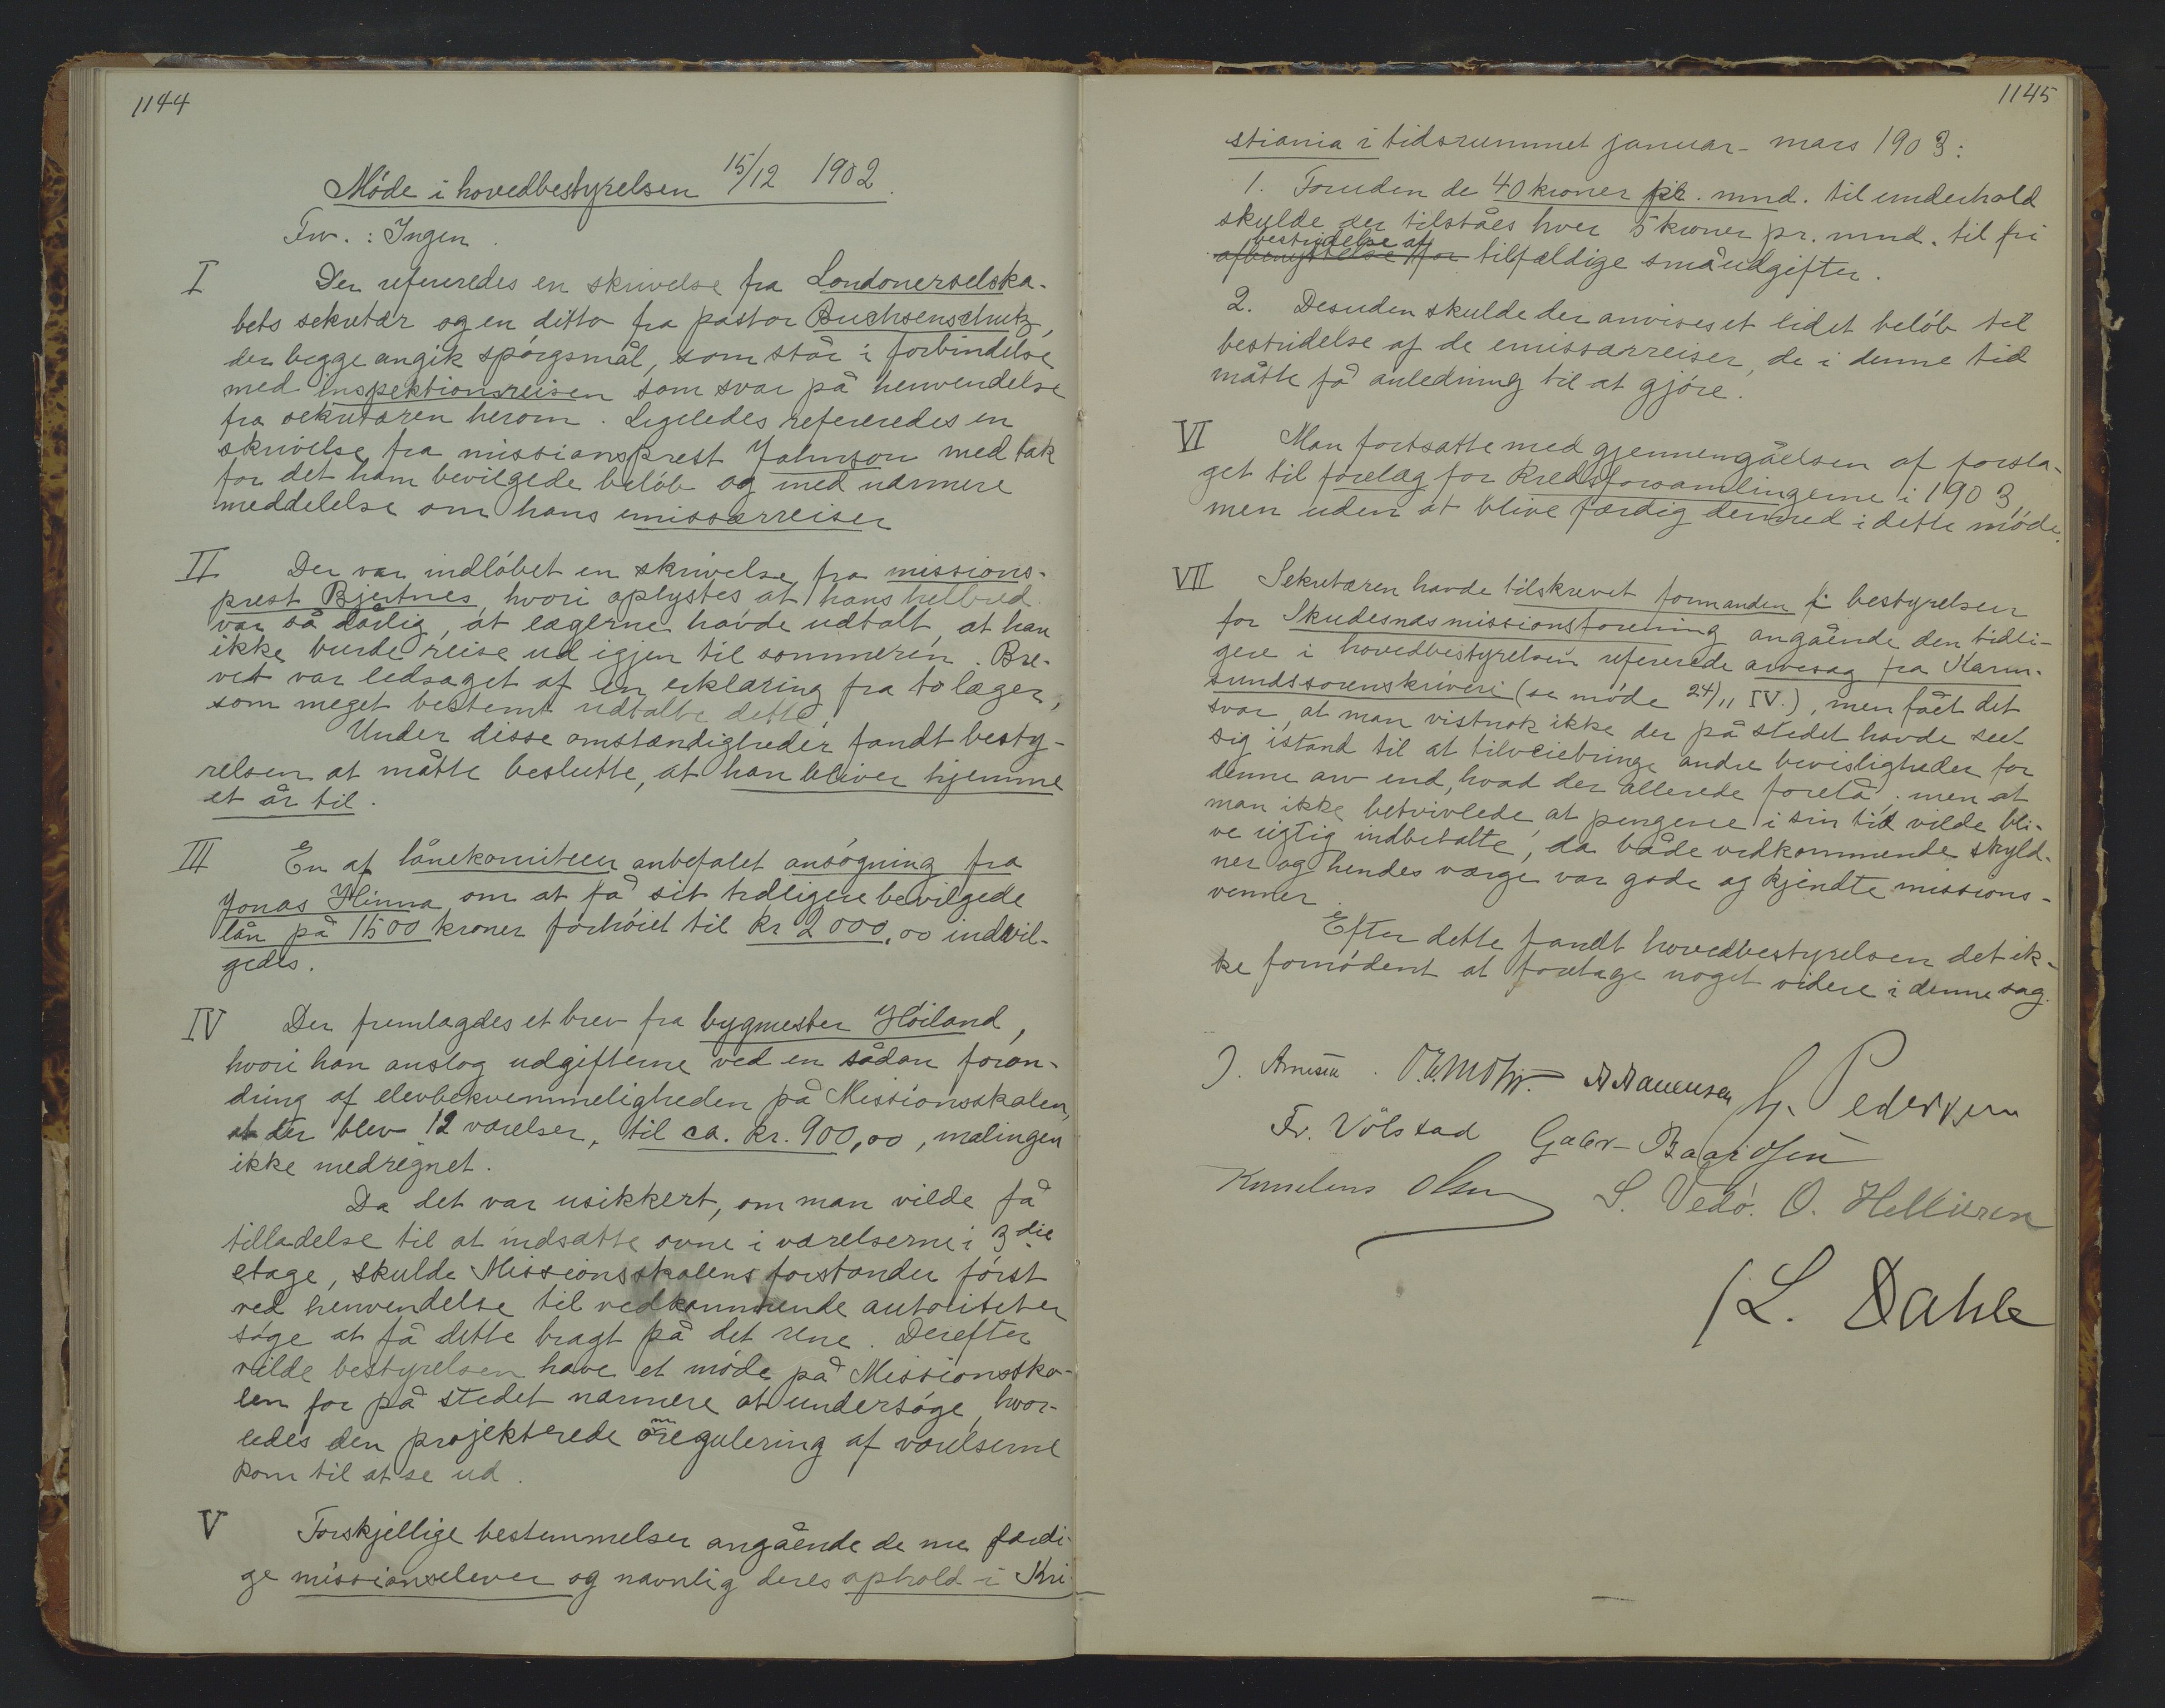 1144
Móde i hovedbestyrelsen 15/12 1902.
Frv.: Ingen.
I Der refereredes en skrivelse fra Londonerselska-
bets sekretær og en ditto fra pastor Buchsenschutz,
der begge angik spórgsmål, som står i forbindelse
med inspektionsreisen som svar på henvendelse
fra sekretæren herom. Ligeledes refereredes en
skrivelse fra missionsprest Johnson med tak
for det ham bevilgede belób og med nærmere
meddelelse om hans emissærreiser
II Der var indlóbet en skrivelse fra missions-
prest Bjertnes, hvori oplystes at hans helbred
var så dårlig, at lægerne havde udtalt, at han
ikke burde reise ud igjen til sommeren. Bre-
vet var ledsaget af en erklæring fra to læger,
som meget bestemt udtalte dette.
Under disse omstændigheder fandt besty-
relsen at måtte beslutte, at han bliver hjemme
et år til.
III En af lånekomiteen anbefalet ansógning fra
Jonas Hinna om at få sit tidligere bevilgede
lån på 1500 kroner forhóiet til kr 2000,00 indvil-
gedes.
IV Der fremlagdes et brev fra bygmester Hóiland,
hvori han anslog udgifterne ved en sådan foran-
dring af elevbekvemmeligheden på Missionsskolen,
at der blev 12 værelser, til ca. kr. 900,00, malingen
ikke medregnet.
Da det var usikkert, om man vilde få
tilladelse til at indsætte ovne i værelserne i 3die
etage, skulde Missionsskolens forstander fórst
ved henvendelse til vedkommende autoriteter
sóge at få dette bragt på det rene. Derefter
vilde bestyrelsen have et móde på Missionssko-
len for på stedet nærmere at undersóge, hvor-
ledes den projekterede omregulering af værelserne
kom til at se ud.
V Forskjellige bestemmelser angående de nu færdi-
ge missionselever og navnlig deres ophold i Kri-
1145
stiania i tidsrummet januar - mars 1903:
1. Foruden de 40 kroner pr. mnd. til underhold
skulde der tilståes hver 5 kroner pr. mnd. til fri
bestridelse af
afbenyttelse for tilfældige småudgifter.
2. Desuden skulde der anvises et lidet belób til
bestridelse af de emissærreiser, de i denne tid
måtte få anledning til at gjóre.
VI Man fortsatte med gjennemgåelsen af forsla-
get til forelæg for kredsforsamlingerne i 1903
men uden at blive færdig dermed i dette móde.
VII Sekretæren havde tilskrevet formanden fi bestyrelsen
for Skudesnæs missionsforening angående den tidli-
gere i hovedbestyrelsen refererede arvesag fra Karm-
sundssorenskriveri (se móde 24/11 IV.), men fået det
svar, at man vistnok ikke der på stedet havde seet
sig istand til at tilveiebringe andre bevisligheder for
denne arv end, hvad der allerede forelå; men at
man ikke betvivlede, at pengene i sin tid vilde bli-
ve rigtig indbetalte, da både vedkommende skyld-
ner og hendes værge var gode og kjendte missions-
venner.
Efter dette fandt hovedbestyrelsen det ik-
ke fornódent at foretage noget videre i denne sag.
J. Arnesen. O. E. Mohn. Pedersen
Fr. Vólstad Gabr. Baardsen
Kornelius Olsen S. Vedó. O. Helliesen
/L. Dahle